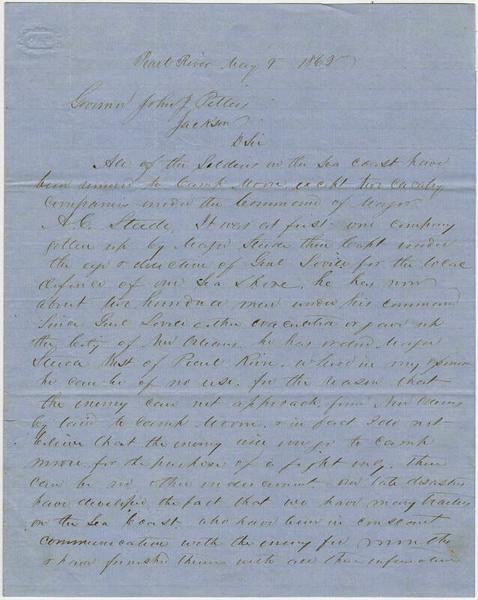 Pearl River May 9 1862
Governor John J Pettus
Jackson
D Sir
All of the Soldiers on the Sea coast have
been removed to Camp Moore except two Cavalry
companies under the Command of Major
A. C. Steede. It was at first one company
gotten up by Major Steede then Capt under
the eye & direction of Genl Lovell for the local
defence of our Sea Shore, he has now
about two hundred men under his command
Since Genl Lovell either evacuated or gave up
the City of New Orleans he has ordered Major
Steede West of Pearl River, where in my opinion
he can be of no use, for the reason that
the enemy can not approach from New Orleans
by land to Camp Moore, & in fact I do not
believe that the enemy will ever go to Camp
Moore for the purpose of a fight only. There
can be no other inducement our late disasters
have developed the fact that we have many traitors
on the Sea Coast who have been in constant
communication with the enemy for months
& have furnished them with all the information